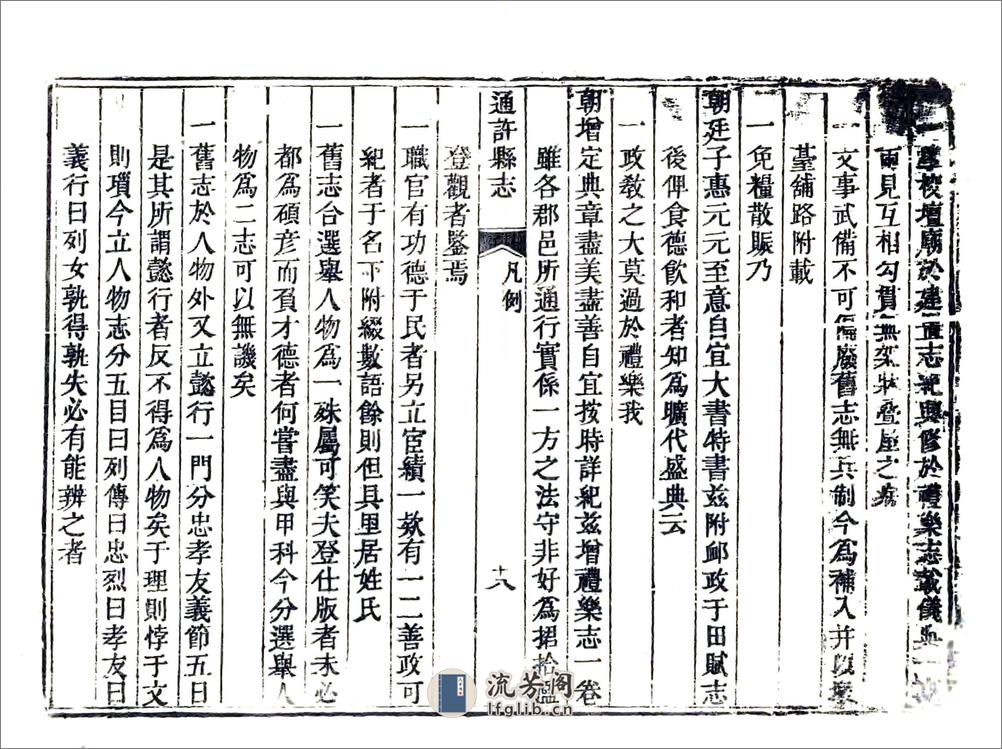 學校壇廟於建置志紀興修於禮樂志載儀典一
兩見互相勾貫無架牀疊屋之病
一文事武備不可偏廢舊志無兵制今為補入并以墩
臺舖路附載
一免糧散賑乃
朝廷子惠元元至意自宜大書特書兹附䘏政于田賦志
後俾食德飲和者知為曠代盛典云
一政教之大莫過於禮樂我
朝增定典章盡美盡善自宜按時詳紀兹增禮樂志一卷
雖各郡邑所通行實係一方之法守非好為捃拾濫
登觀者鑒焉
通許縣志
凡例
十八
一職官有功德于民者另立宦績一欵有一二善政可
紀者于名下附綴數語餘則但具里居姓氏
一舊志合選舉人物為一殊屬可笑夫登仕版者未必
都為碩彦而負才德者何嘗盡與甲科今分選舉人
物為二志可以無譏矣
一舊志於人物外又立懿行一門分忠孝友義節五目
是其所謂懿行者反不得為人物矣于理則悖于文
則瑣今立人物志分五目曰列傳曰忠烈曰孝友曰
義行曰列女孰得孰失必有能辨之者
流芳阁
lfglib.cn